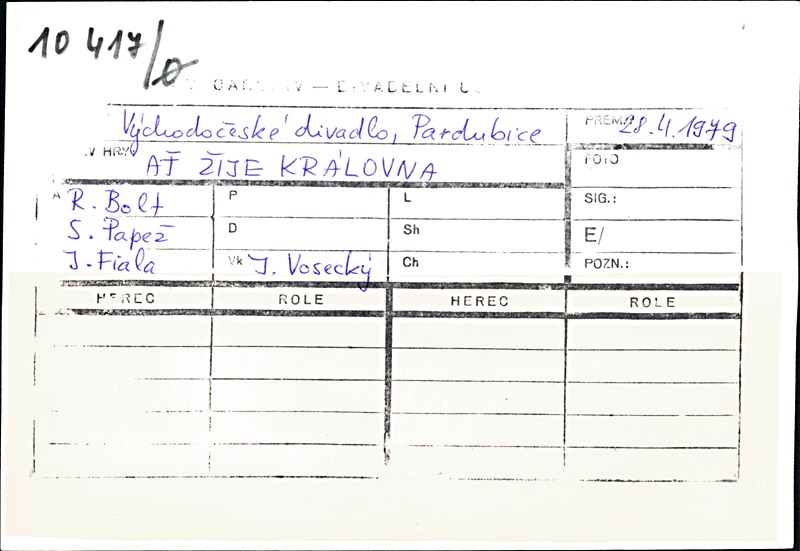 10 417/0
— DIVADELNÍ Ú.
Východočeské divadlo, Pardubice PREM. 28.4.1979
V HRY AŤ ŽIJE KRÁLOVNA FOTO
A R. Bolt P L SIG.:
S. Papež D Sh E/
J. Fiala Vk J. Vosecký Ch POZN.:
HEREC ROLE HEREC ROLE